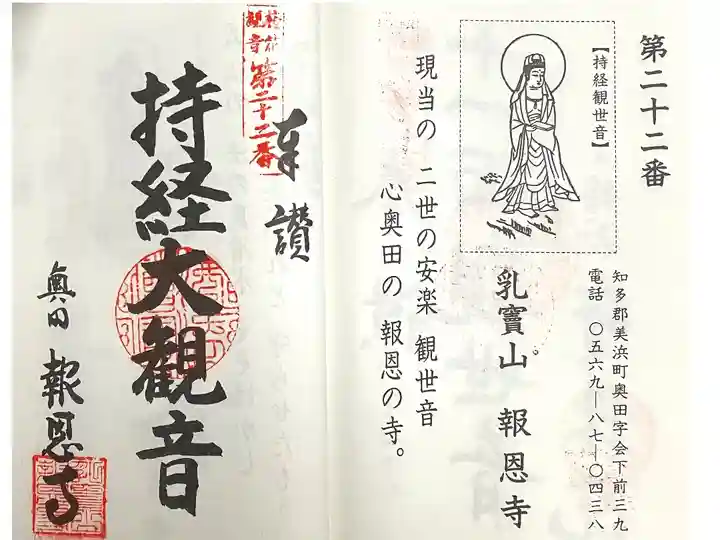 第二十二番
【持経観世音】
知多郡美浜町奥田字会下前三九
電話 〇五六九―八七―〇四三八
乳竇山 報恩寺
現当の 二世の安楽 観世音
心奥田の 報恩の寺。
第二十二番
奉讃
持経大観音
奥田 報恩寺